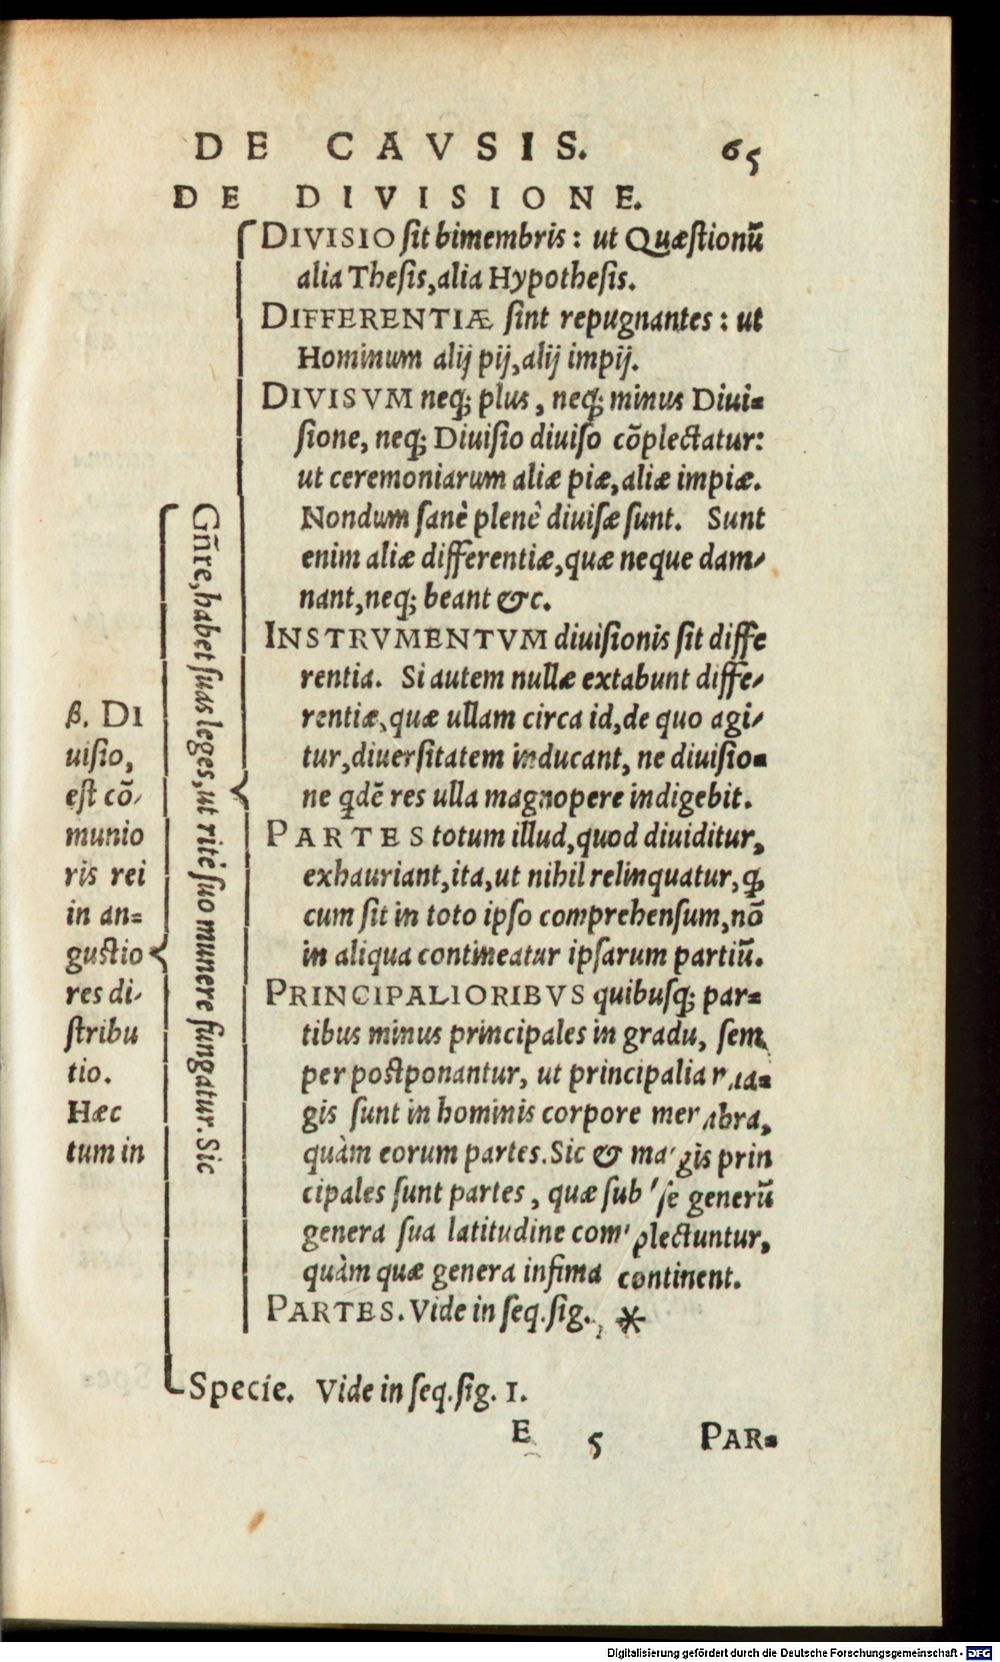 DE CAVSIS. 65
DE DIVISIONE.
β. DI
uisio,
est cō-
munio
ris rei
in an=
gustio
res di-
stribu
tio.
Hæc
tum in
Gñre, habet suas leges, ut ritè suo munere fungatur. Sic
DIVISIO sit bimembris: ut Quæstionū
alia Thesis, alia Hypothesis.
DIFFERENTIÆ sint repugnantes: ut
Hominum alij pij, alij impij.
DIVISVM neq; plus, neq; minus Diui=
sione, neq; Diuisio diuiso cōplectatur:
ut ceremoniarum aliæ piæ, aliæ impiæ.
Nondum sanè plenè diuisæ sunt. Sunt
enim aliæ differentiæ, quæ neque dam-
nant, neq; beant &c.
INSTRVMENTVM diuisionis sit diffe
rentia. Si autem nullæ extabunt diffe-
rentiæ, quæ ullam circa id, de quo agi-
tur, diuersitatem inducant, ne diuisio=
ne qdē res ulla magnopere indigebit.
PARTES totum illud, quod diuiditur,
exhauriant, ita, ut nihil relinquatur, q
cum sit in toto ipso comprehensum, nō
in aliqua contineatur ipsarum partiū.
PRINCIPALIORIBVS quibusq; par=
tibus minus principales in gradu, sem
per postponantur, ut principalia ma=
gis sunt in hominis corpore membra,
quàm eorum partes. Sic & magis prin
cipales sunt partes, quæ sub se generū
genera sua latitudine complectuntur,
quàm quæ genera infima continent.
PARTES. Vide in seq. sig. *
Specie. Vide in seq. sig. 1.
E 5 PAR=
Digitalisierung gefördert durch die Deutsche Forschungsgemeinschaft - DFG